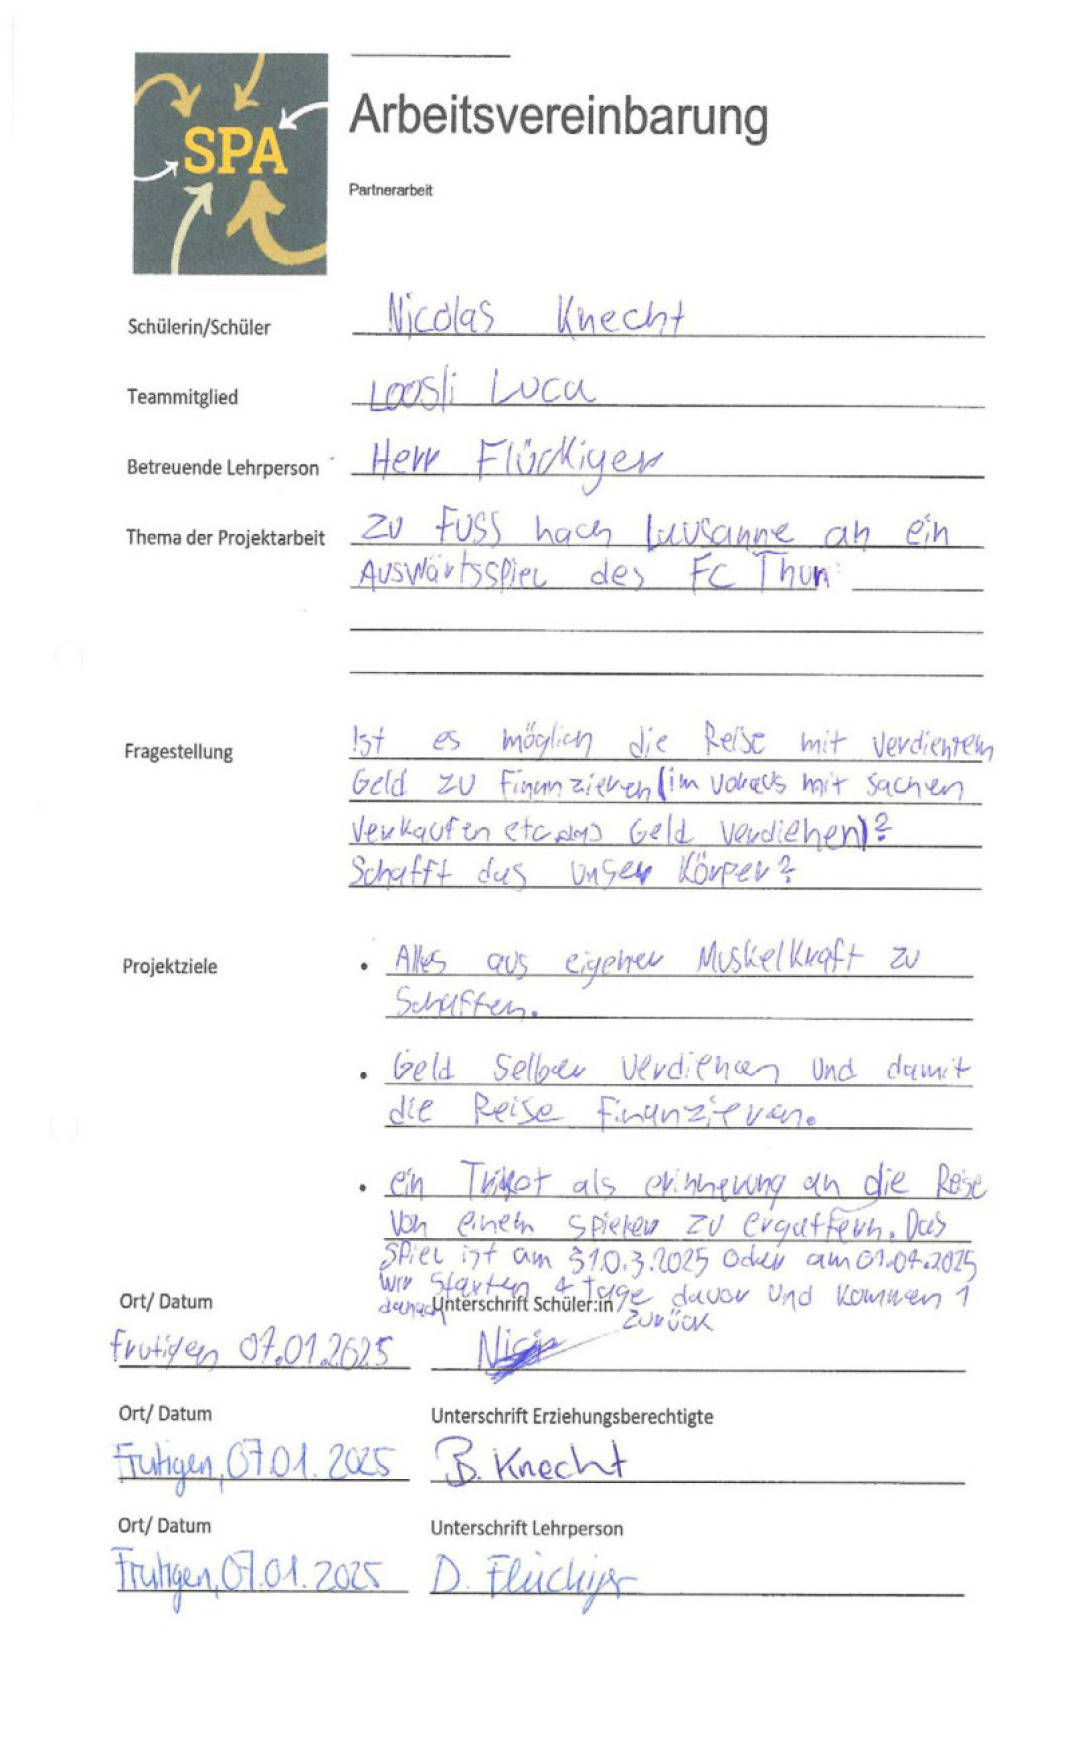 SPA
Arbeitsvereinbarung
Partnerarbeit
Schülerin/Schüler Nicolas Knecht
Teammitglied Loosli Luca
Betreuende Lehrperson Herr Flückiger
Thema der Projektarbeit zu Fuss nach Lausanne an ein
Auswärtsspiel des FC Thun
Fragestellung Ist es möglich die Reise mit verdientem
Geld zu Finanzieren (im voraus mit sachen
verkaufen etc. Geld verdienen)?
Schafft das unser Körper?
Projektziele • Alles aus eigener Muskelkraft zu
Schaffen.
• Geld selber verdienen und damit
die Reise Finanzieren.
• ein Trikot als erinnerung an die Reise
von einem spieler zu ergattern. Das
Spiel ist am 310.3.2025 oder am 01.04.2025
wir starten 4 tage davor und kommen 1
danach zurück
Ort/ Datum Unterschrift Schüler:in
Frutigen 07.01.2025
Ort/ Datum Unterschrift Erziehungsberechtigte
Frutigen, 07.01.2025 B. Knecht
Ort/ Datum Unterschrift Lehrperson
Frutigen, 07.01.2025 D. Flückiger